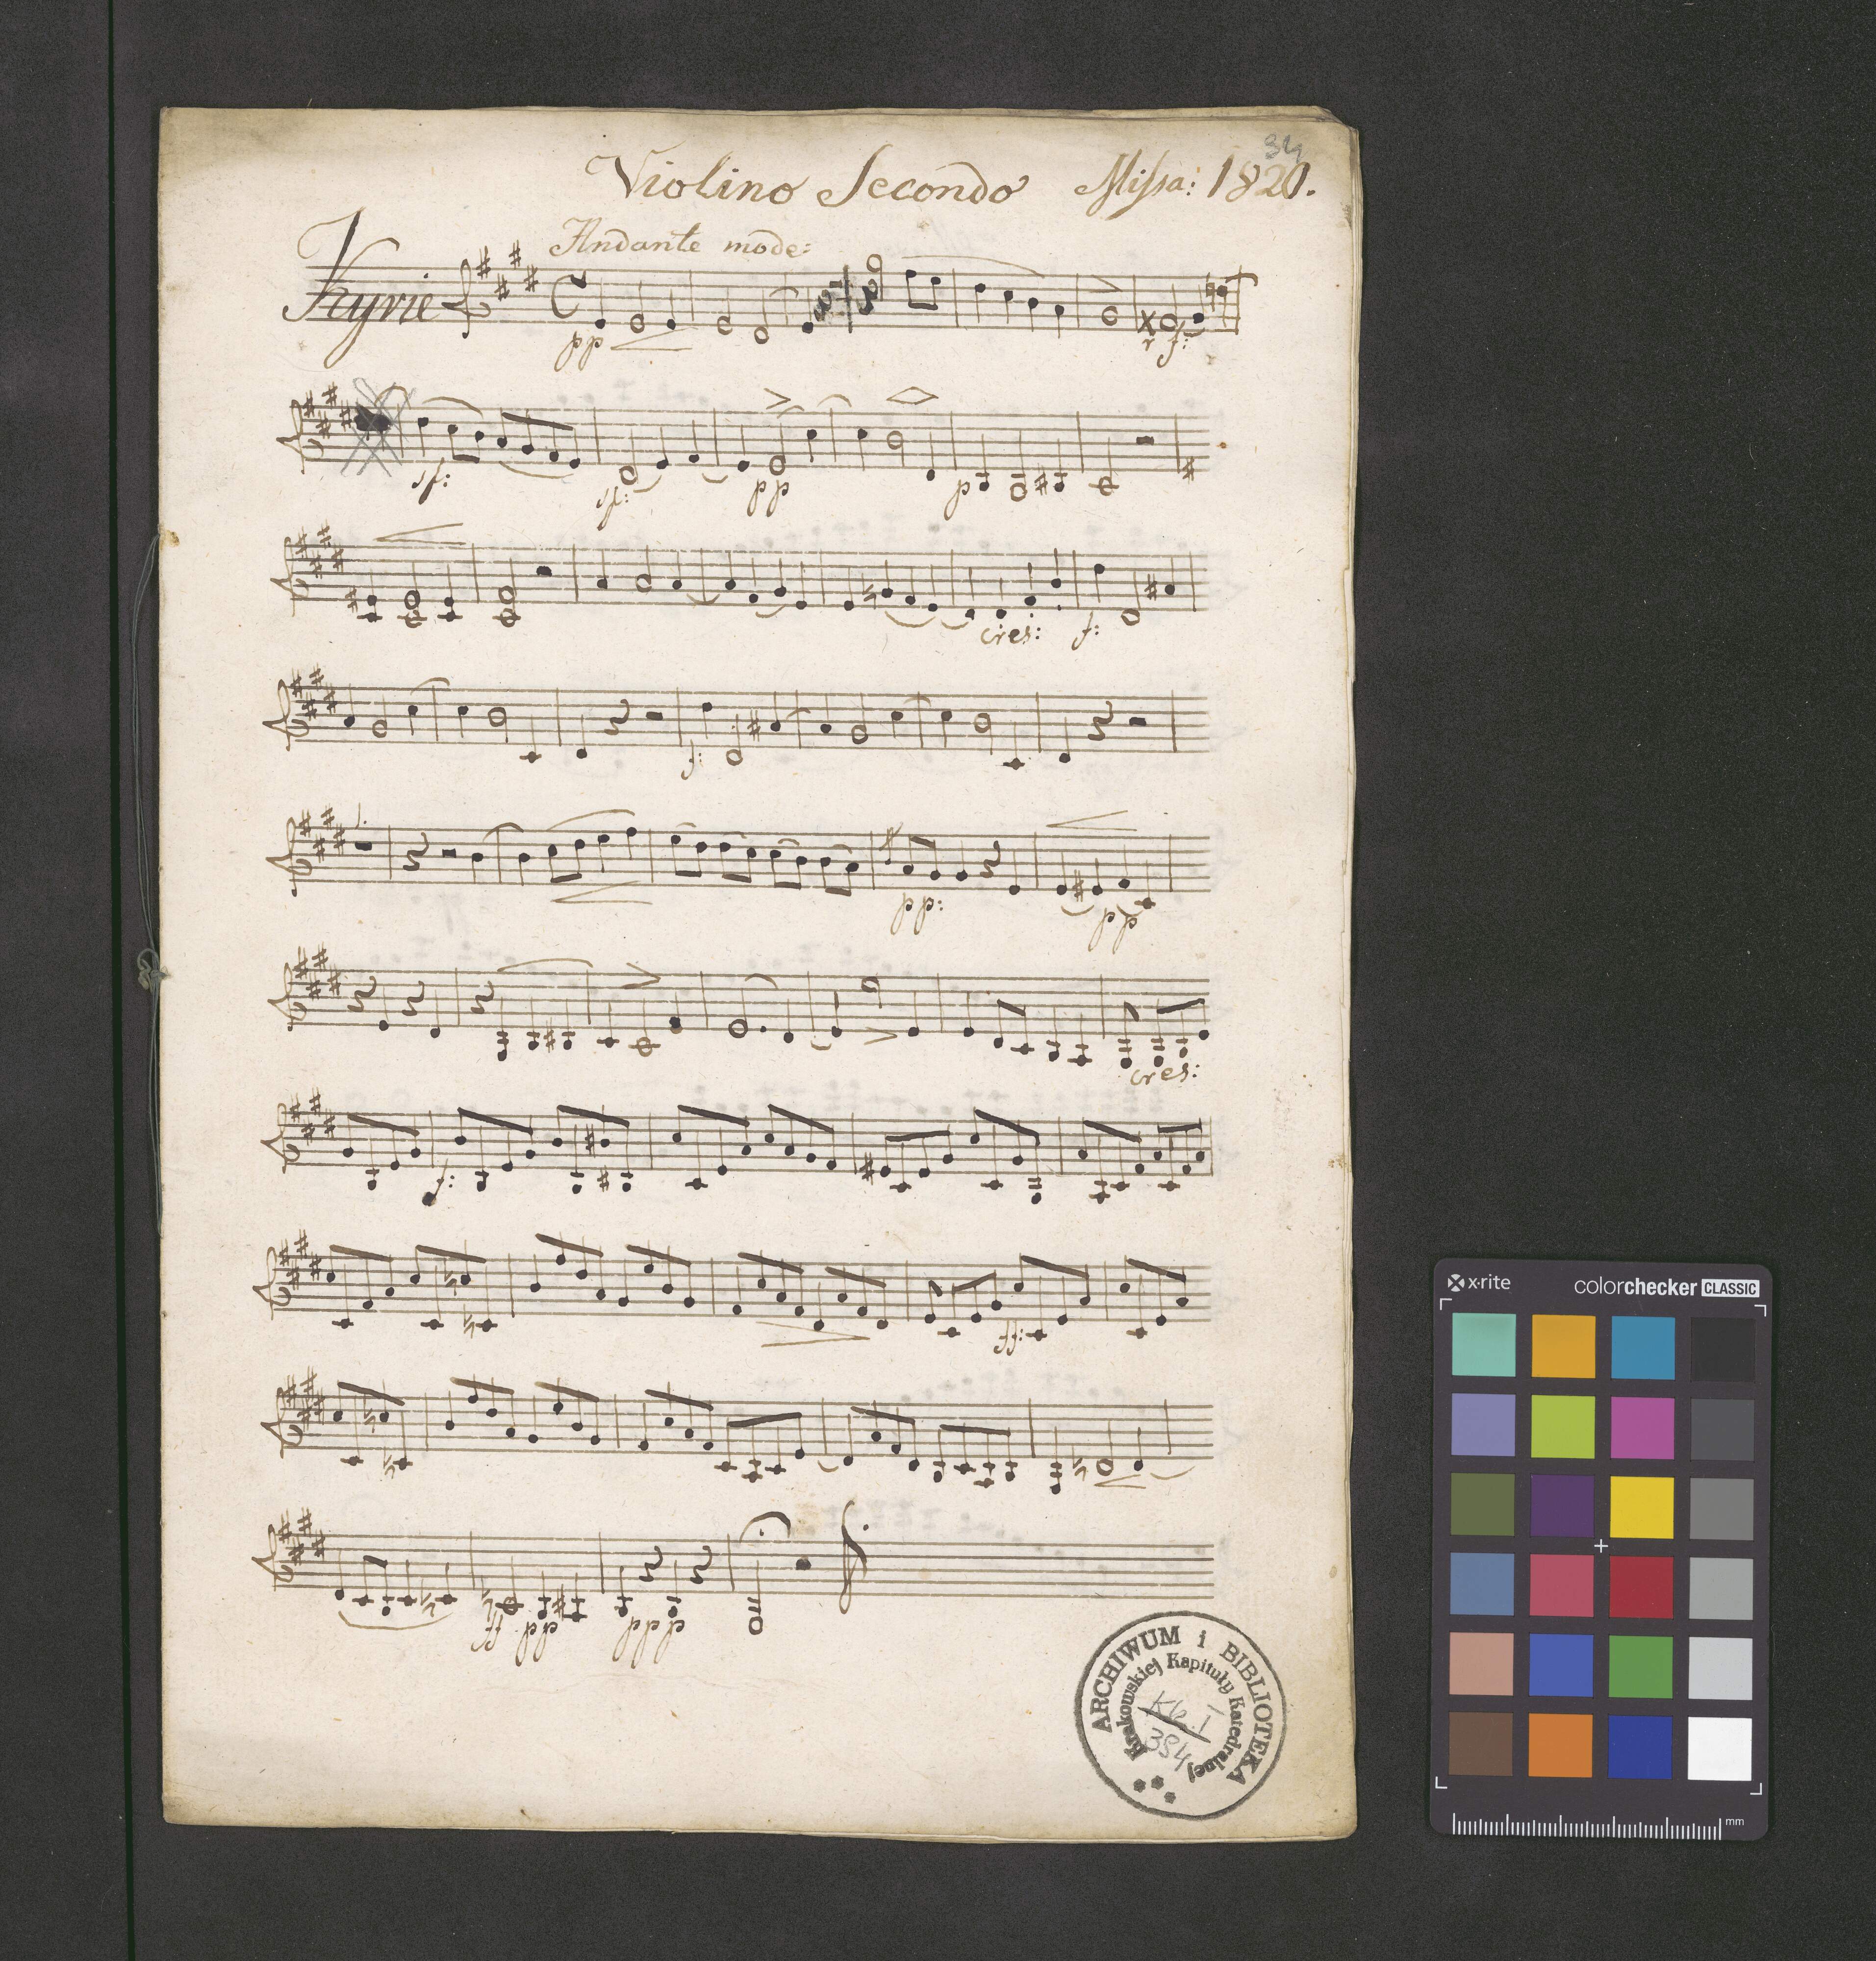 34
Violino Secondo Missa: 1820.
Andante mode:
Kyrie
pp
f:
sf: sf: pp p
cres: f:
f:
pp: pp
cres:
f:
ff:
ff pp ppp
ARCHIWUM i BIBLIOTEKA
Krakowskiej Kapituły Katedralnej
Kk. I
384
x·rite colorchecker CLASSIC
mm